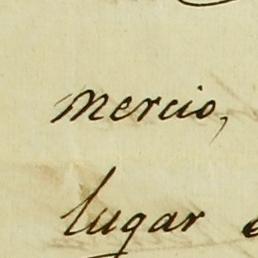 mercio,
lugar